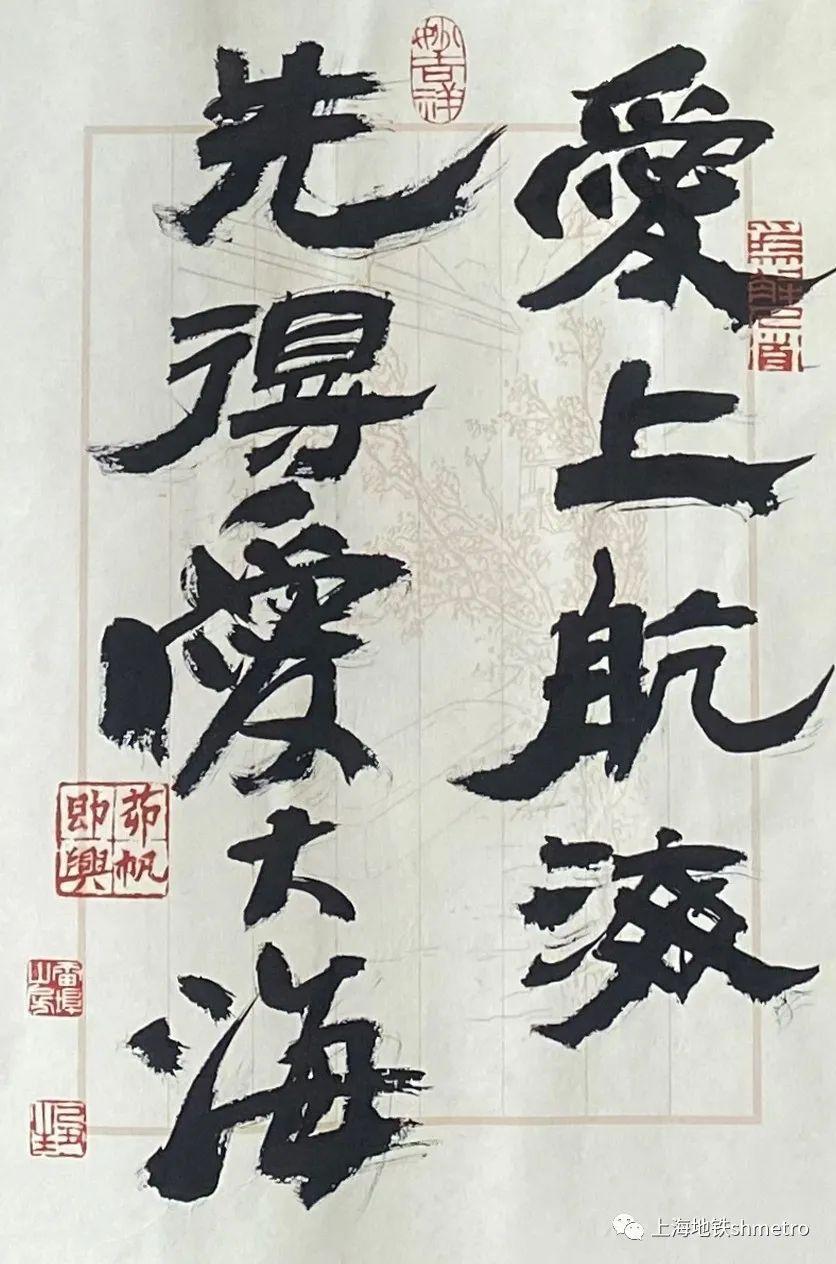 愛上航海
先得愛大海
妙吉祥
茆帆
即興
上海地铁shmetro